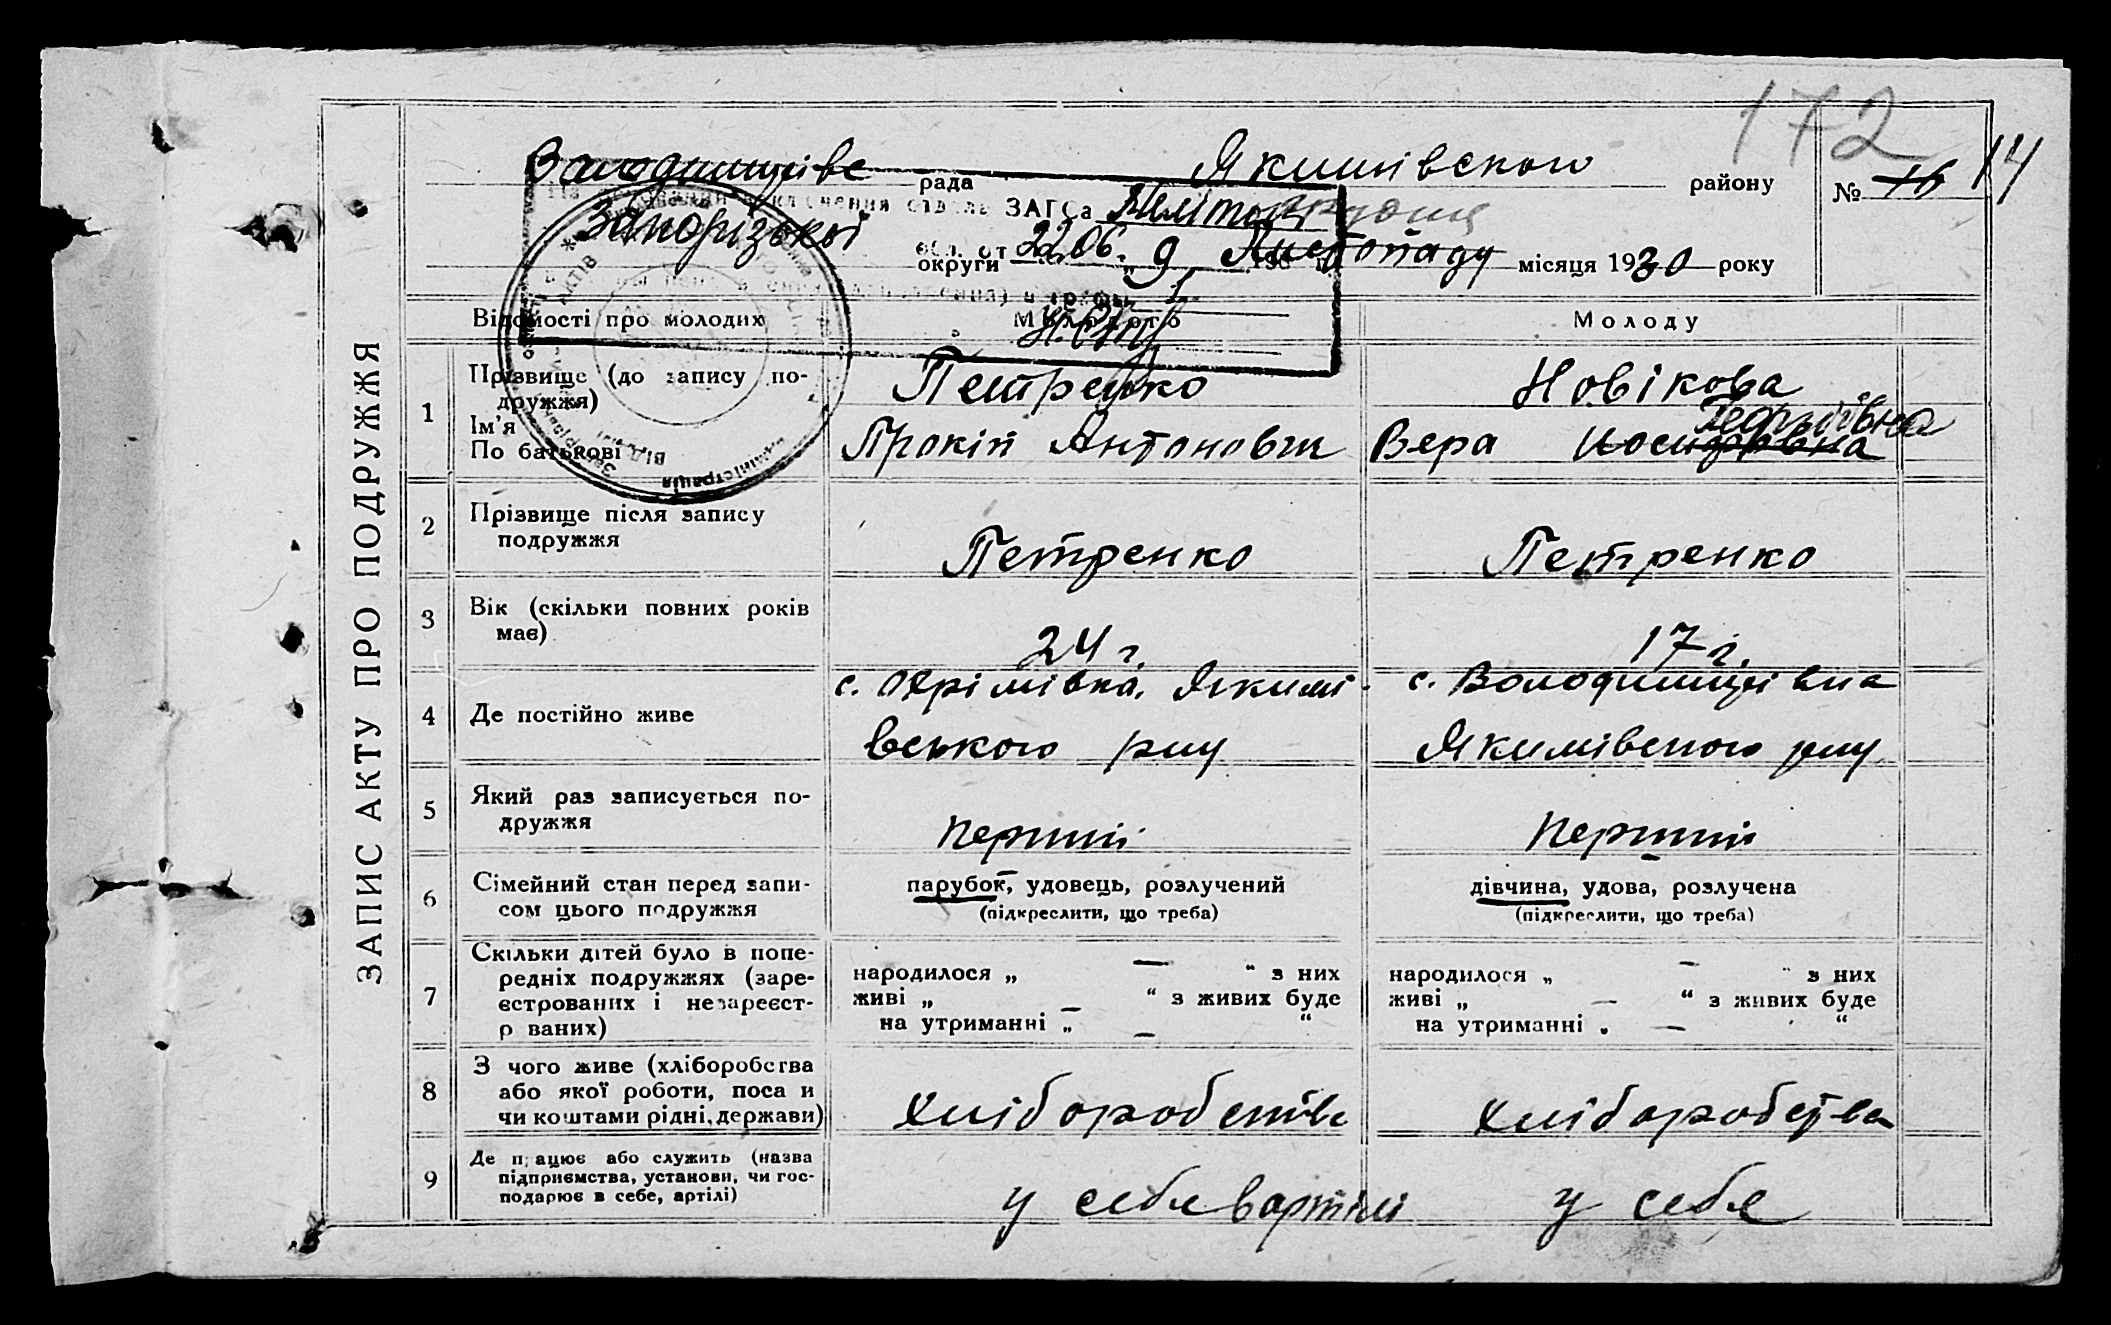 172
Якимівского району
рада
№ 16 14
ЗАГСа
Запорізької
обл. от 22.06.
округи „ 9 Листопаду місяця 1930 року
ЗАПИС АКТУ ПРО ПОДРУЖЖЯ
Відомості про молодих
Молодого
Молоду
1
Прізвище (до запису по-
дружжя)
Ім'я
По батькові
Петренко
Новікова
Прокіп Антонович
Вера Иосифовна
2
Прізвище після запису
подружжя
Петренко
Петренко
3
Вік (скільки повних років
має)
24 г.
17 г.
4
Де постійно живе
с. Охрімівка, Якимі-
вського р-ну
с. Володимирівка
Якимівского р-ну
5
Який раз записується по-
дружжя
перший
перший
6
Сімейний стан перед запи-
сом цього подружжя
парубок, удовець, розлучений
(підкреслити, що треба)
дівчина, удова, розлучена
(підкреслити, що треба)
7
Скільки дітей було в попе-
редніх подружжях (заре-
єстрованих і незареєст-
р ваних)
народилося „ — “ з них
живі „ — “ з живих буде
на утриманні „ — “
народилося „ — “ з них
живі „ — “ з живих буде
на утриманні „ — “
8
З чого живе (хліборобства
або якої роботи, поса и
чи коштами рідні, держави)
хліборобства
хліборобства
9
Де працює або служить (назва
підприємства, установи, чи гос-
подарює в себе, артілі)
у себе в артілі
у себе